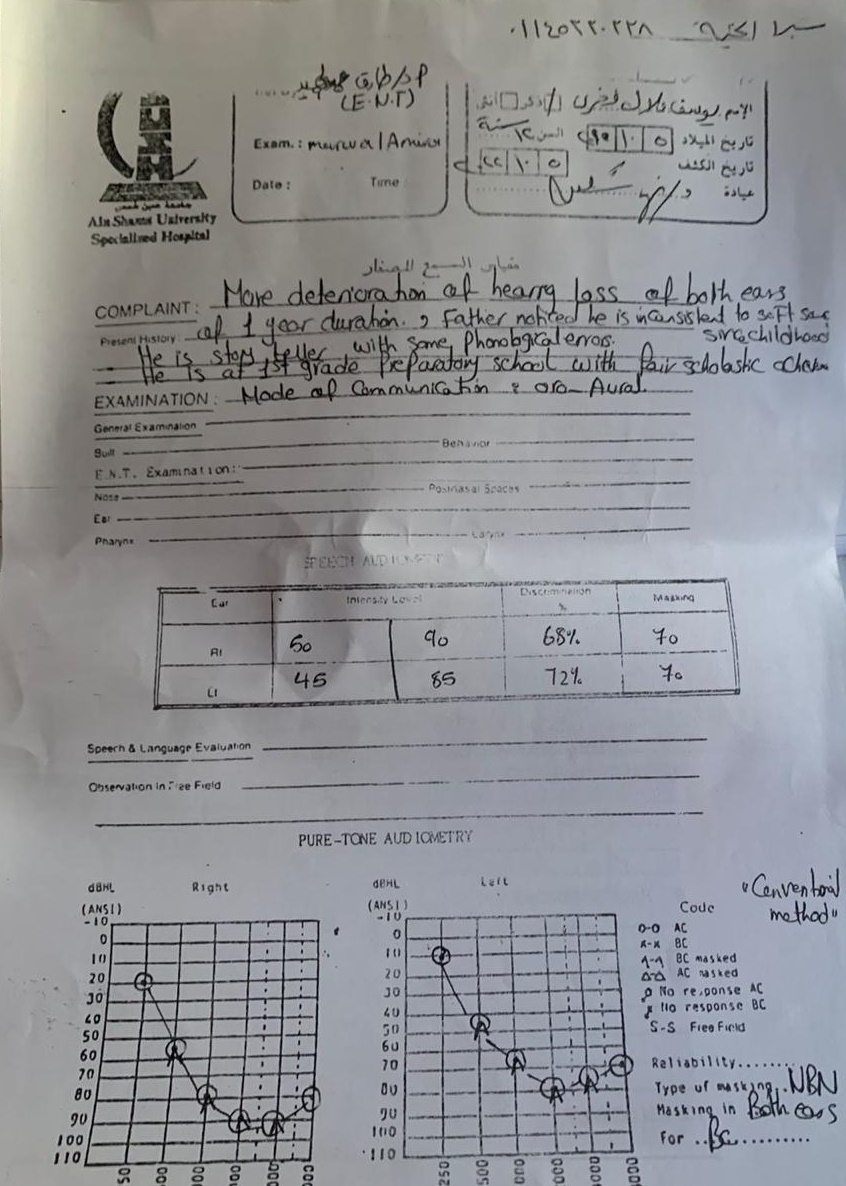 ٠١١٤٥٢٢٠٢٢٨
(E.N.T)
Exam. :
Date :
Time
الإسم يوسف بلال
تاريخ الميلاد
السن ١٢ سنة
تاريخ الكشف
عيادة
جامعة عين شمس
Ain Shams University
Specialized Hospital
مقياس السمع للصغار
COMPLAINT : More deterioration of hearing loss of both ears
Present History: of 1 year duration. , Father noticed he is inconsistent to soft
since childhood
He is story teller with some Phonological errors.
He is at 1st grade Preparatory school with fair scholastic
EXAMINATION : Mode of Communication : oro-Aural.
General Examination
Built
Behavior
E.N.T. Examination:
Nose
Postnasal Spaces
Ear
Pharynx
Larynx
SPEECH AUDIOMETRY
Ear Intensity Level Discrimination % Masking
Rt 50 90 68% 70
Lt 45 85 72% 70
Speech & Language Evaluation
Observation in Free Field
PURE-TONE AUDIOMETRY
dBHL Right
(ANSI)
-10
0
10
20
30
40
50
60
70
80
90
100
110
dBHL Left
(ANSI)
-10
0
10
20
30
40
50
60
70
80
90
100
110
250
500
"Conventional
method"
Code
O-O AC
x-x BC
BC masked
AC masked
No response AC
No response BC
S-S Free Field
Reliability........
Type of masking..NBN
Masking in Both ears
For ..BC..........